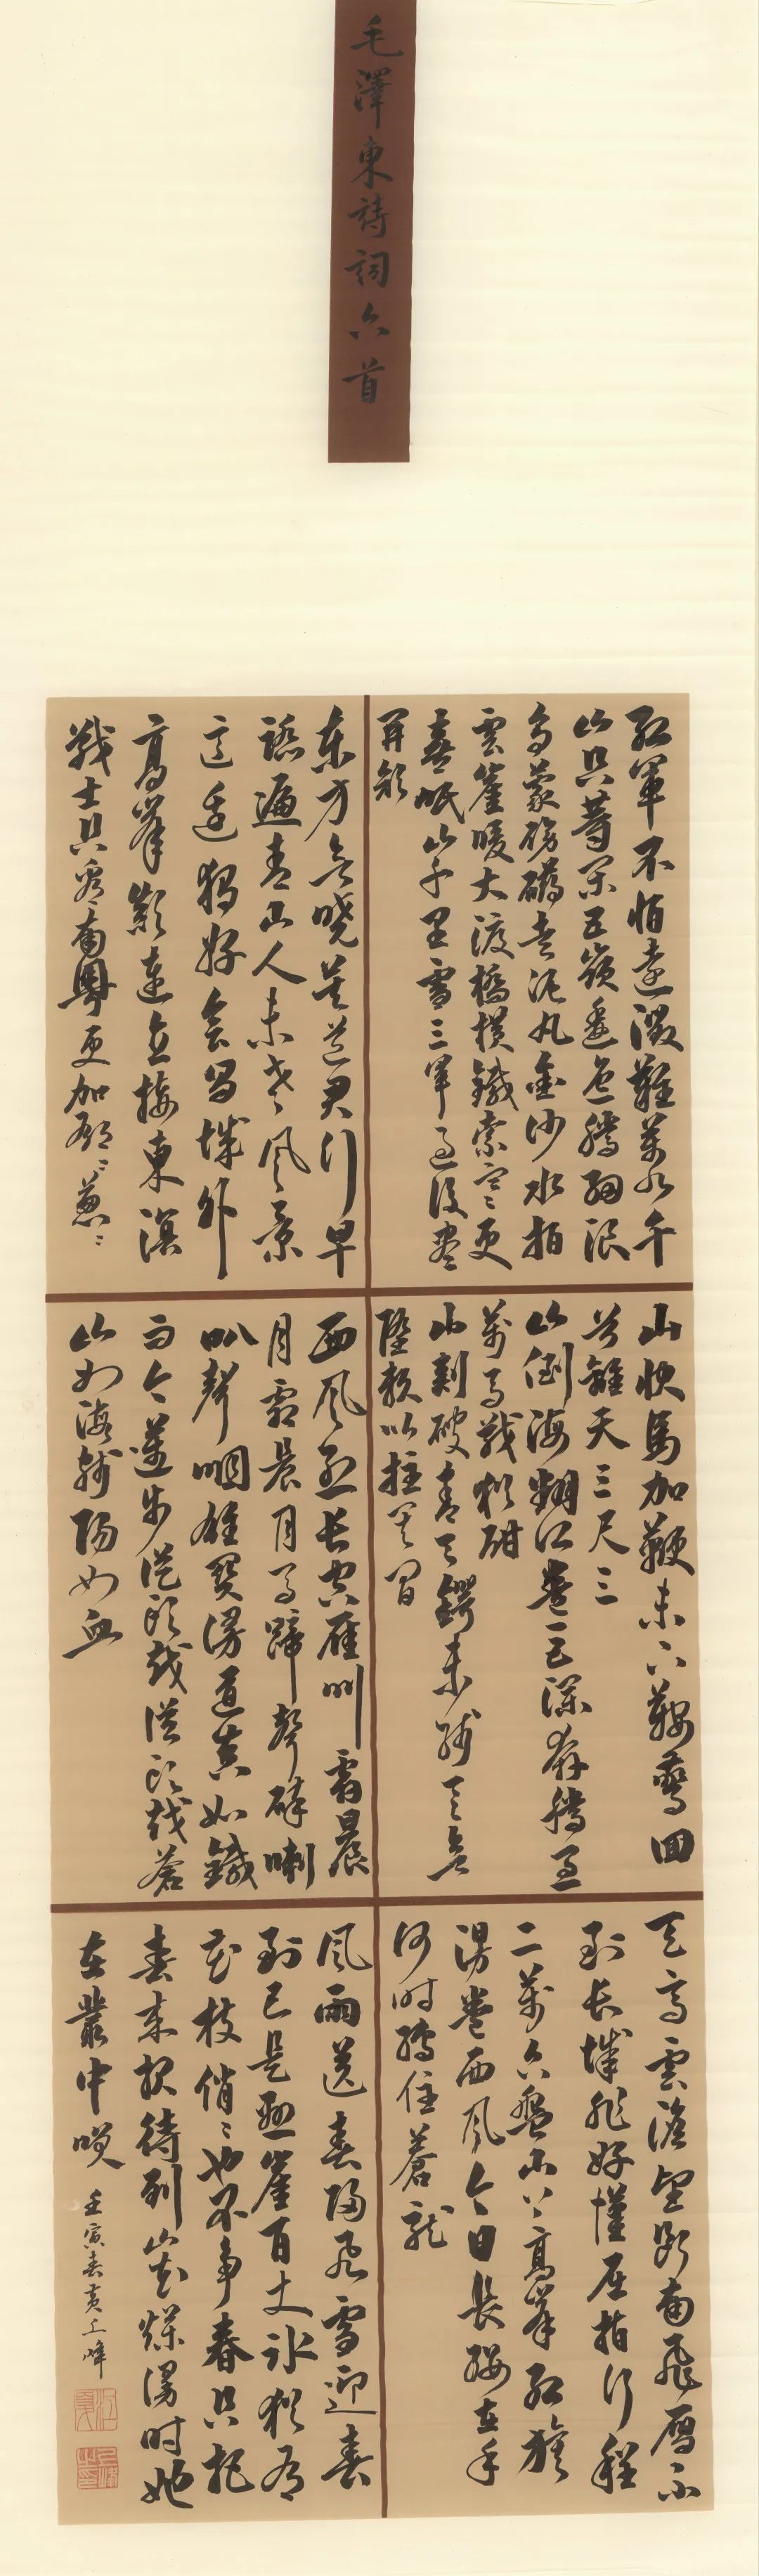 毛澤東詩詞六首
紅軍不怕遠徵難萬水千
山只等閑五嶺逶迤騰細浪
烏蒙磅礴走泥丸金沙水拍
雲崖暖大渡橋橫鐵索寒更
喜岷山千里雪三軍過後盡
開顏
東方欲曉莫道君行早
踏遍青山人未老風景
這邊獨好會昌城外
高峰顛連直接東溟
戰士指看南粵更加郁〻葱〻
山快馬加鞭未下鞍驚回
首離天三尺三
山倒海翻江卷巨瀾奔騰急
萬馬戰猶酣
山刺破青天鍔未殘天欲
墮賴以拄其間
西風烈長空雁叫霜晨
月霜晨月馬蹄聲碎喇
叭聲咽雄關漫道真如鐵
而今邁步從頭越從頭越蒼
山如海殘陽如血
天高雲淡望斷南飛雁不
到長城非好漢屈指行程
二萬六盤山上高峰紅旗
漫卷西風今日長纓在手
何時縛住蒼龍
風雨送春歸飛雪迎春
到已是懸崖百丈冰猶有
花枝俏〻也不爭春只把
春來報待到山花爛漫時她
在叢中笑
壬寅春